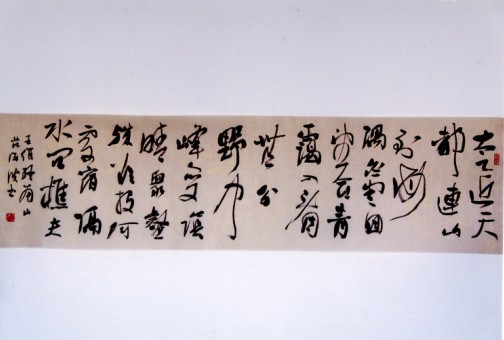 太乙近天
都連山
到海
隅白雲回
望合青
靄入看
無分
野中
峰變陰
晴眾壑
殊欲投何
處宿隔
水問樵夫
王維終南山
書